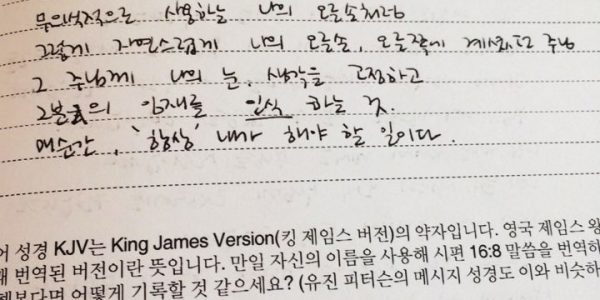 무의식적으로 사용하는 나의 오른손처럼
그렇게 자연스럽게 나의 오른손, 오른쪽에 계시는 주님
그 주님께 나의 눈, 생각을 고정하고
그분의 임재를 인식 하는 것.
매순간, '항상' 내가 해야 할 일이다.
어 성경 KJV는 King James Version(킹 제임스 버전)의 약자입니다. 영국 제임스 왕
해 번역된 버전이란 뜻입니다. 만일 자신의 이름을 사용해 시편 16:8 말씀을 번역하
해보다면 어떻게 기록할 것 같으세요? (유진 피터슨의 메시지 성경도 이와 비슷하